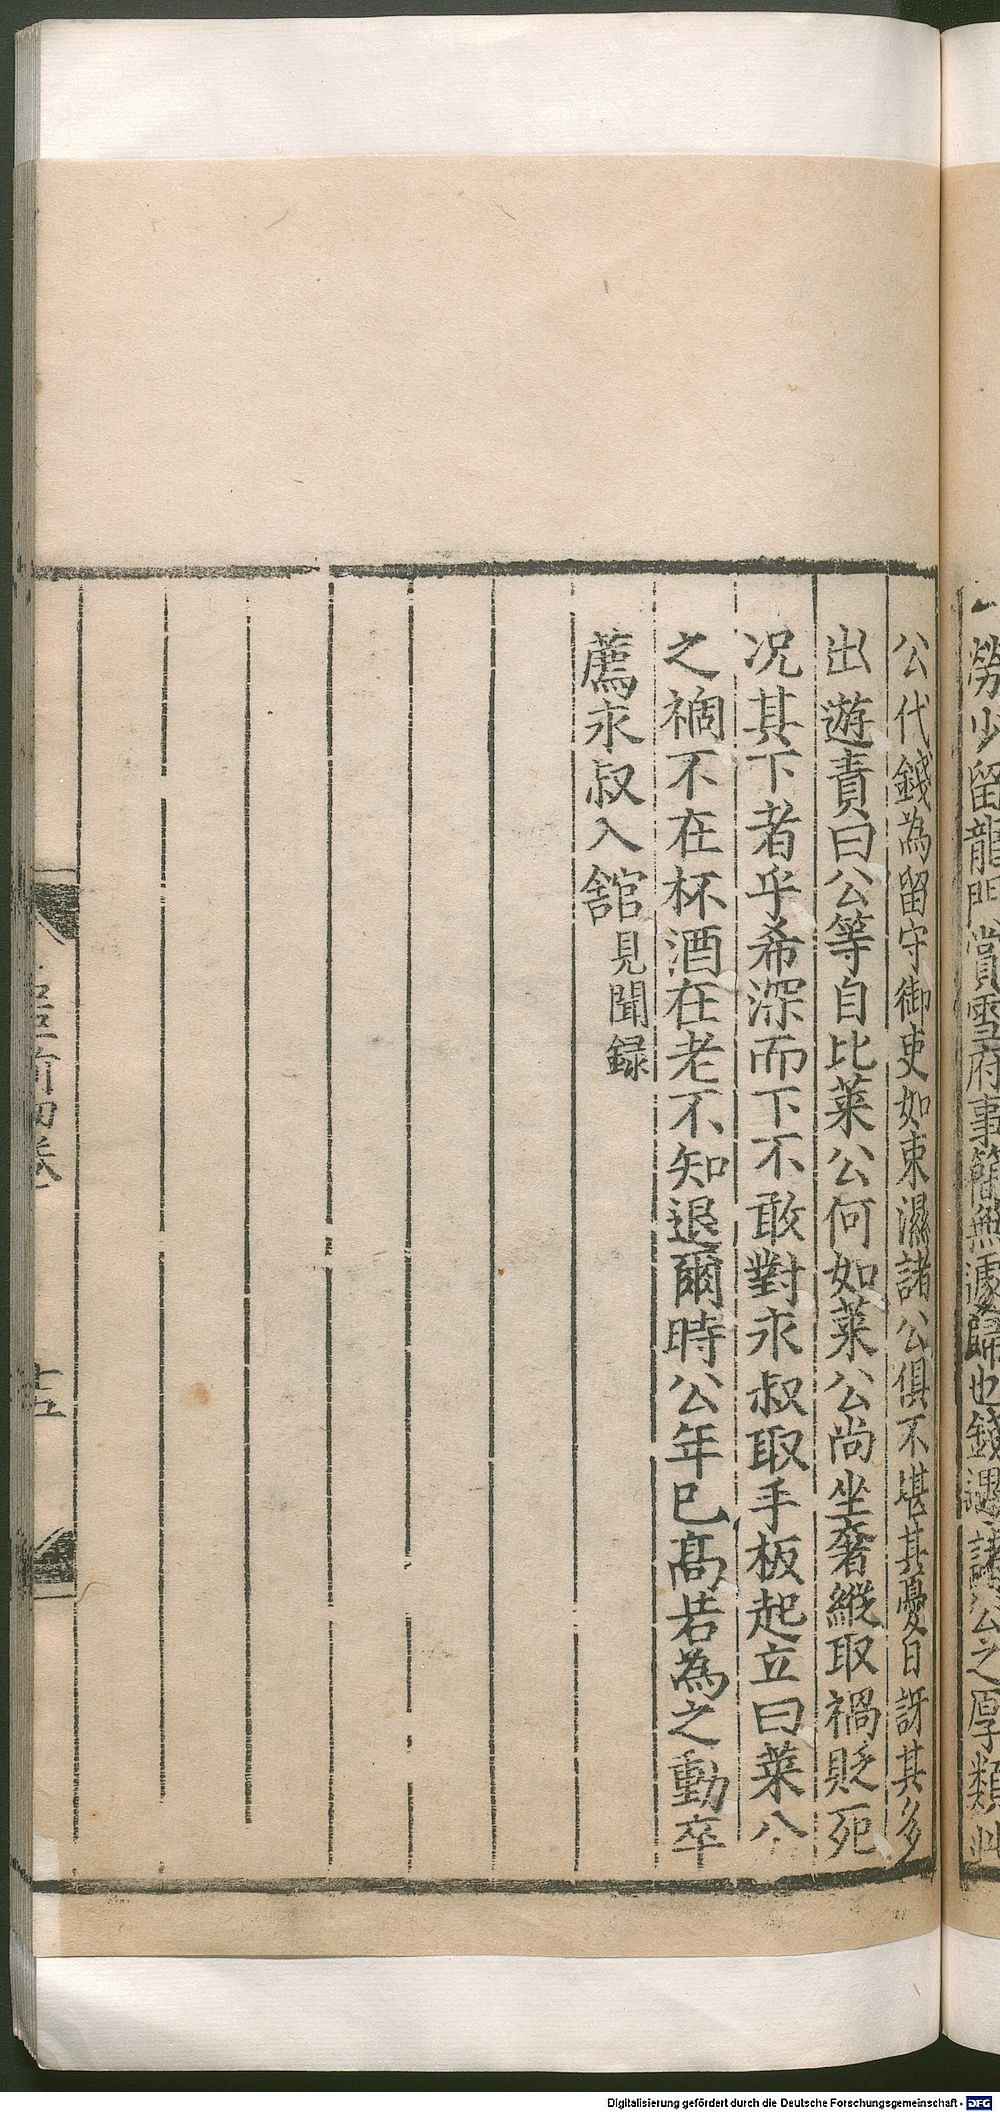 勞少留龍門賞雪府事簡無遽歸也錢遇諸公之厚類此
公代錢為留守御吏如束濕諸公俱不堪其憂日訝其多
出遊責曰公等自比萊公何如萊公尚坐奢縱取禍貶死
况其下者乎希深而下不敢對永叔取手板起立曰萊公
之禍不在杯酒在老不知退爾時公年已高若為之動卒
薦永叔入舘見聞録
十五
Digitalisierung gefördert durch die Deutsche Forschungsgemeinschaft - DFG